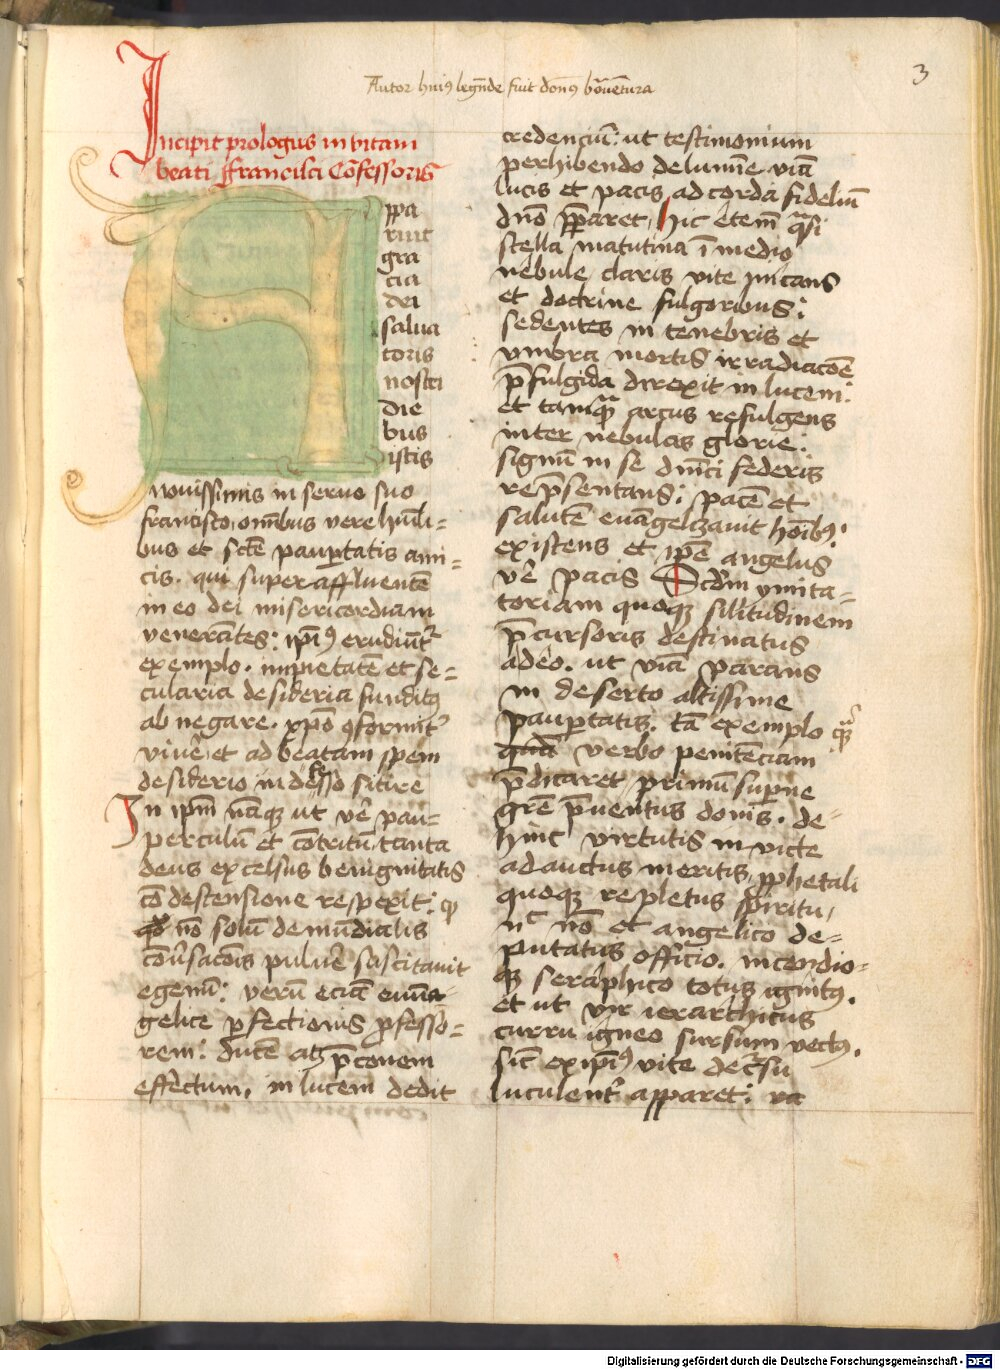 3
Autor huiꝰ legēde fuit dōnꝰ bōuētura
Incipit prologus in vitam
beati francisci Cōfessoris
Appa
ruit
gra
cia
dei
salua
toris
nostri
die
bus
istis
nouissimis in seruo suo
francisco, omībus vere humīli⸗
bus et scтe paupertatis ami⸗
cis. qui super affluentē
in eo dei misericordiam
venerātes: ipīꝰ erudiūtᷣ
exemplo. impietatē et se⸗
cularia desideria funditꝰ
abnegare. xp̄o ꝯformitᷣ
viuē, et ad beatam spem
desiderio indefesso sitire
In ip̄m nāqꝫ ut vē pau⸗
perculū et cōtritū, tanta
deus excelsus benignitatis
cōdescensione respexit: qꝫ
nō solū de mūdialis
cōūsacōis puluē suscitauit
egenū: verū eciā euua⸗
gelice ꝑfectionis ꝓfesso⸗
rem: ducē atqꝫ p̄conem
effectum, in lucem dedit
credenciū. ut testimonium
perhibendo de lumīe. viā
lucis et pacis ad corda fideliū
dn̄o p̄ꝑaret, hic etem̄ qᵃsi
stella matutina ī medio
nebule, claris vite micans
et doctrine fulgoribus:
sedentes in tenebris et
vmbra mortis irradiacōē
p̄fulgida direxit in lucem:
et tamqᵃꝫ arcus refulgens
inter nebulas glorie:
signū in se dn̄ici federis
rep̄sentans: pacē et
salutē euāgelizauit hoībꝰ.
existens et ip̄e angelus
vē pacis Scd̄m ymita⸗
toriam quoqꝫ silitudinem
p̄cursoris destinatus
a deo. ut viā parans
in deserto altissime
paupertatis. tā exemplo qᵃꝫ
quā verbo penitēciam
p̄dicaret primū superne
grē p̄uentus donis. de⸗
hinc virtutis inuicte
adauctus meritis, ꝓphetali
quoqꝫ repletus spiritu,
nᶜ nō et angelico de⸗
putatus officio. incendio⸗
qꝫ seraphico totus ignitꝰ.
et ut vir ierarchicus
curru igneo sursum vectꝰ.
sic̄ ex ipīꝰ vite dec̄su
luculentᷣ apparet: ra
Digitalisierung gefördert durch die Deutsche Forschungsgemeinschaft - DFG